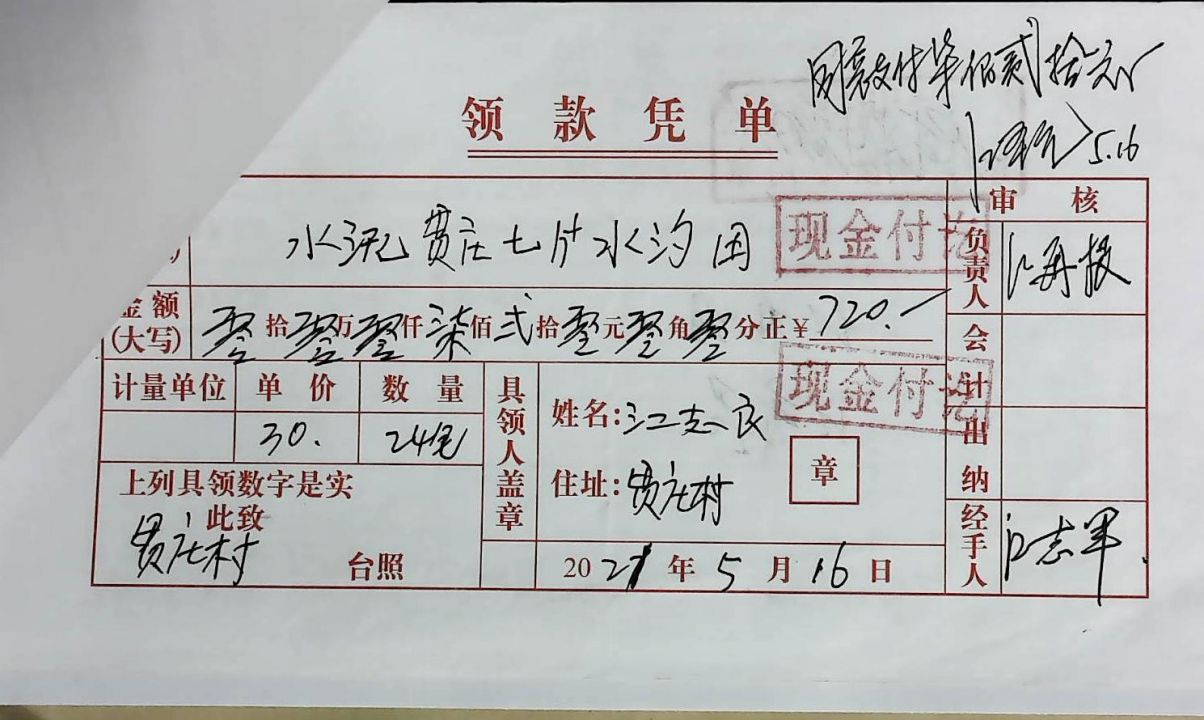 同意支付柒佰贰拾元
5.16
领款凭单
审核
水泥贾庄七片水沟用
现金付讫
负责人
金额(大写) 零拾零万零仟柒佰弍拾零元零角零分正¥720.-
会计
现金付讫
计量单位 单价 数量
30. 24包
具领人盖章
姓名:江志良
住址:贾庄村
章
出纳
上列具领数字是实
此致
贾庄村
台照
2021年5月16日
经手人 江志军